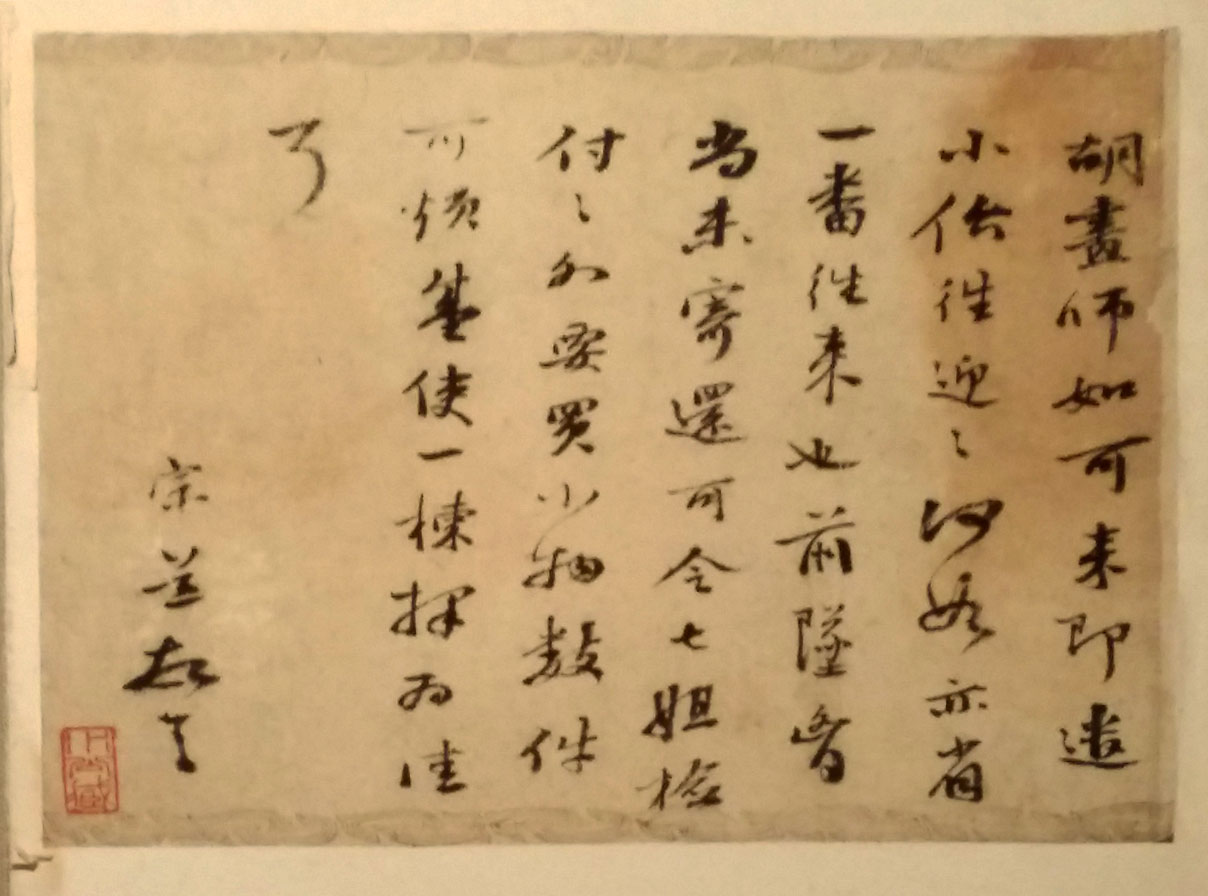 胡畫師如可來即遣
小伻往迎之何如亦省
一番往來也前墜
尚未寄還可令七姐檢
付之外要買小物數件
可煩使一揀擇為佳
了
宗